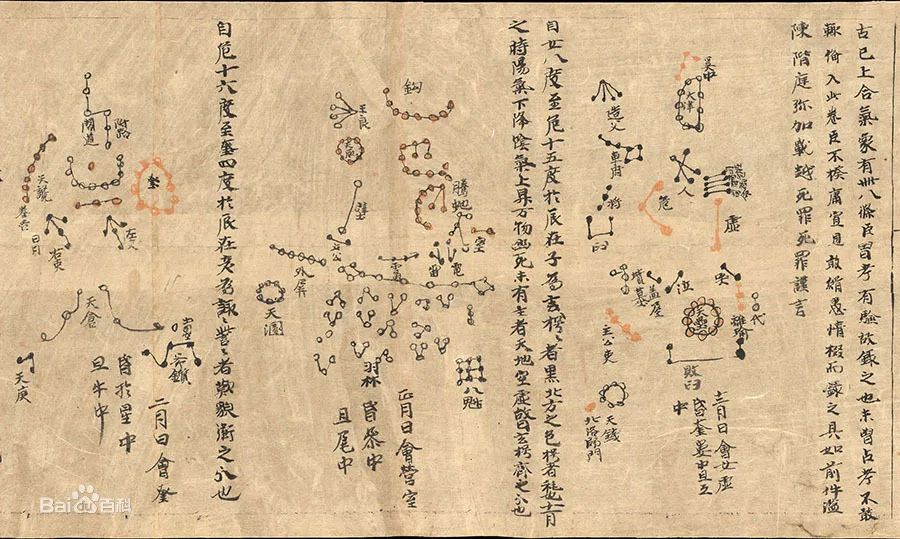 古已上合氣象有卌八條臣曾考有驗故錄之也未曾占考不敢
輒備入此卷臣不揆庸冝見敢緝愚情掇而錄之具如前件滥
陳階庭弥加戰越死罪死罪謹言
天津
造父
車府
人
危
虛
杵
臼
哭
泣
墳墓
蓋屋
天壘
離瑜
代
敗臼
天錢
北落師門
十二月日會女虛
昏奎婁中旦亢
中
自女八度至危十五度於辰在子為玄枵〻者黑北方之色枵者耗也十一月
之時陽氣下降陰氣上昇万物幽死未有生者天地空虛故曰玄枵齊之分也
鈎
王良
螣蛇
室
雷
電
壁
土公
雲雨
外屏
天溷
羽林
八魁
正月日會營室
昏参中
旦尾中
自危十六度至奎四度於辰在亥為諏訾〻者歎貌衛之分也
附路
閣道
奎
天將
婁
左更
右更
天倉
天庾
鈇鑕
二月日會奎
昏於星中
旦牛中
Bai百科